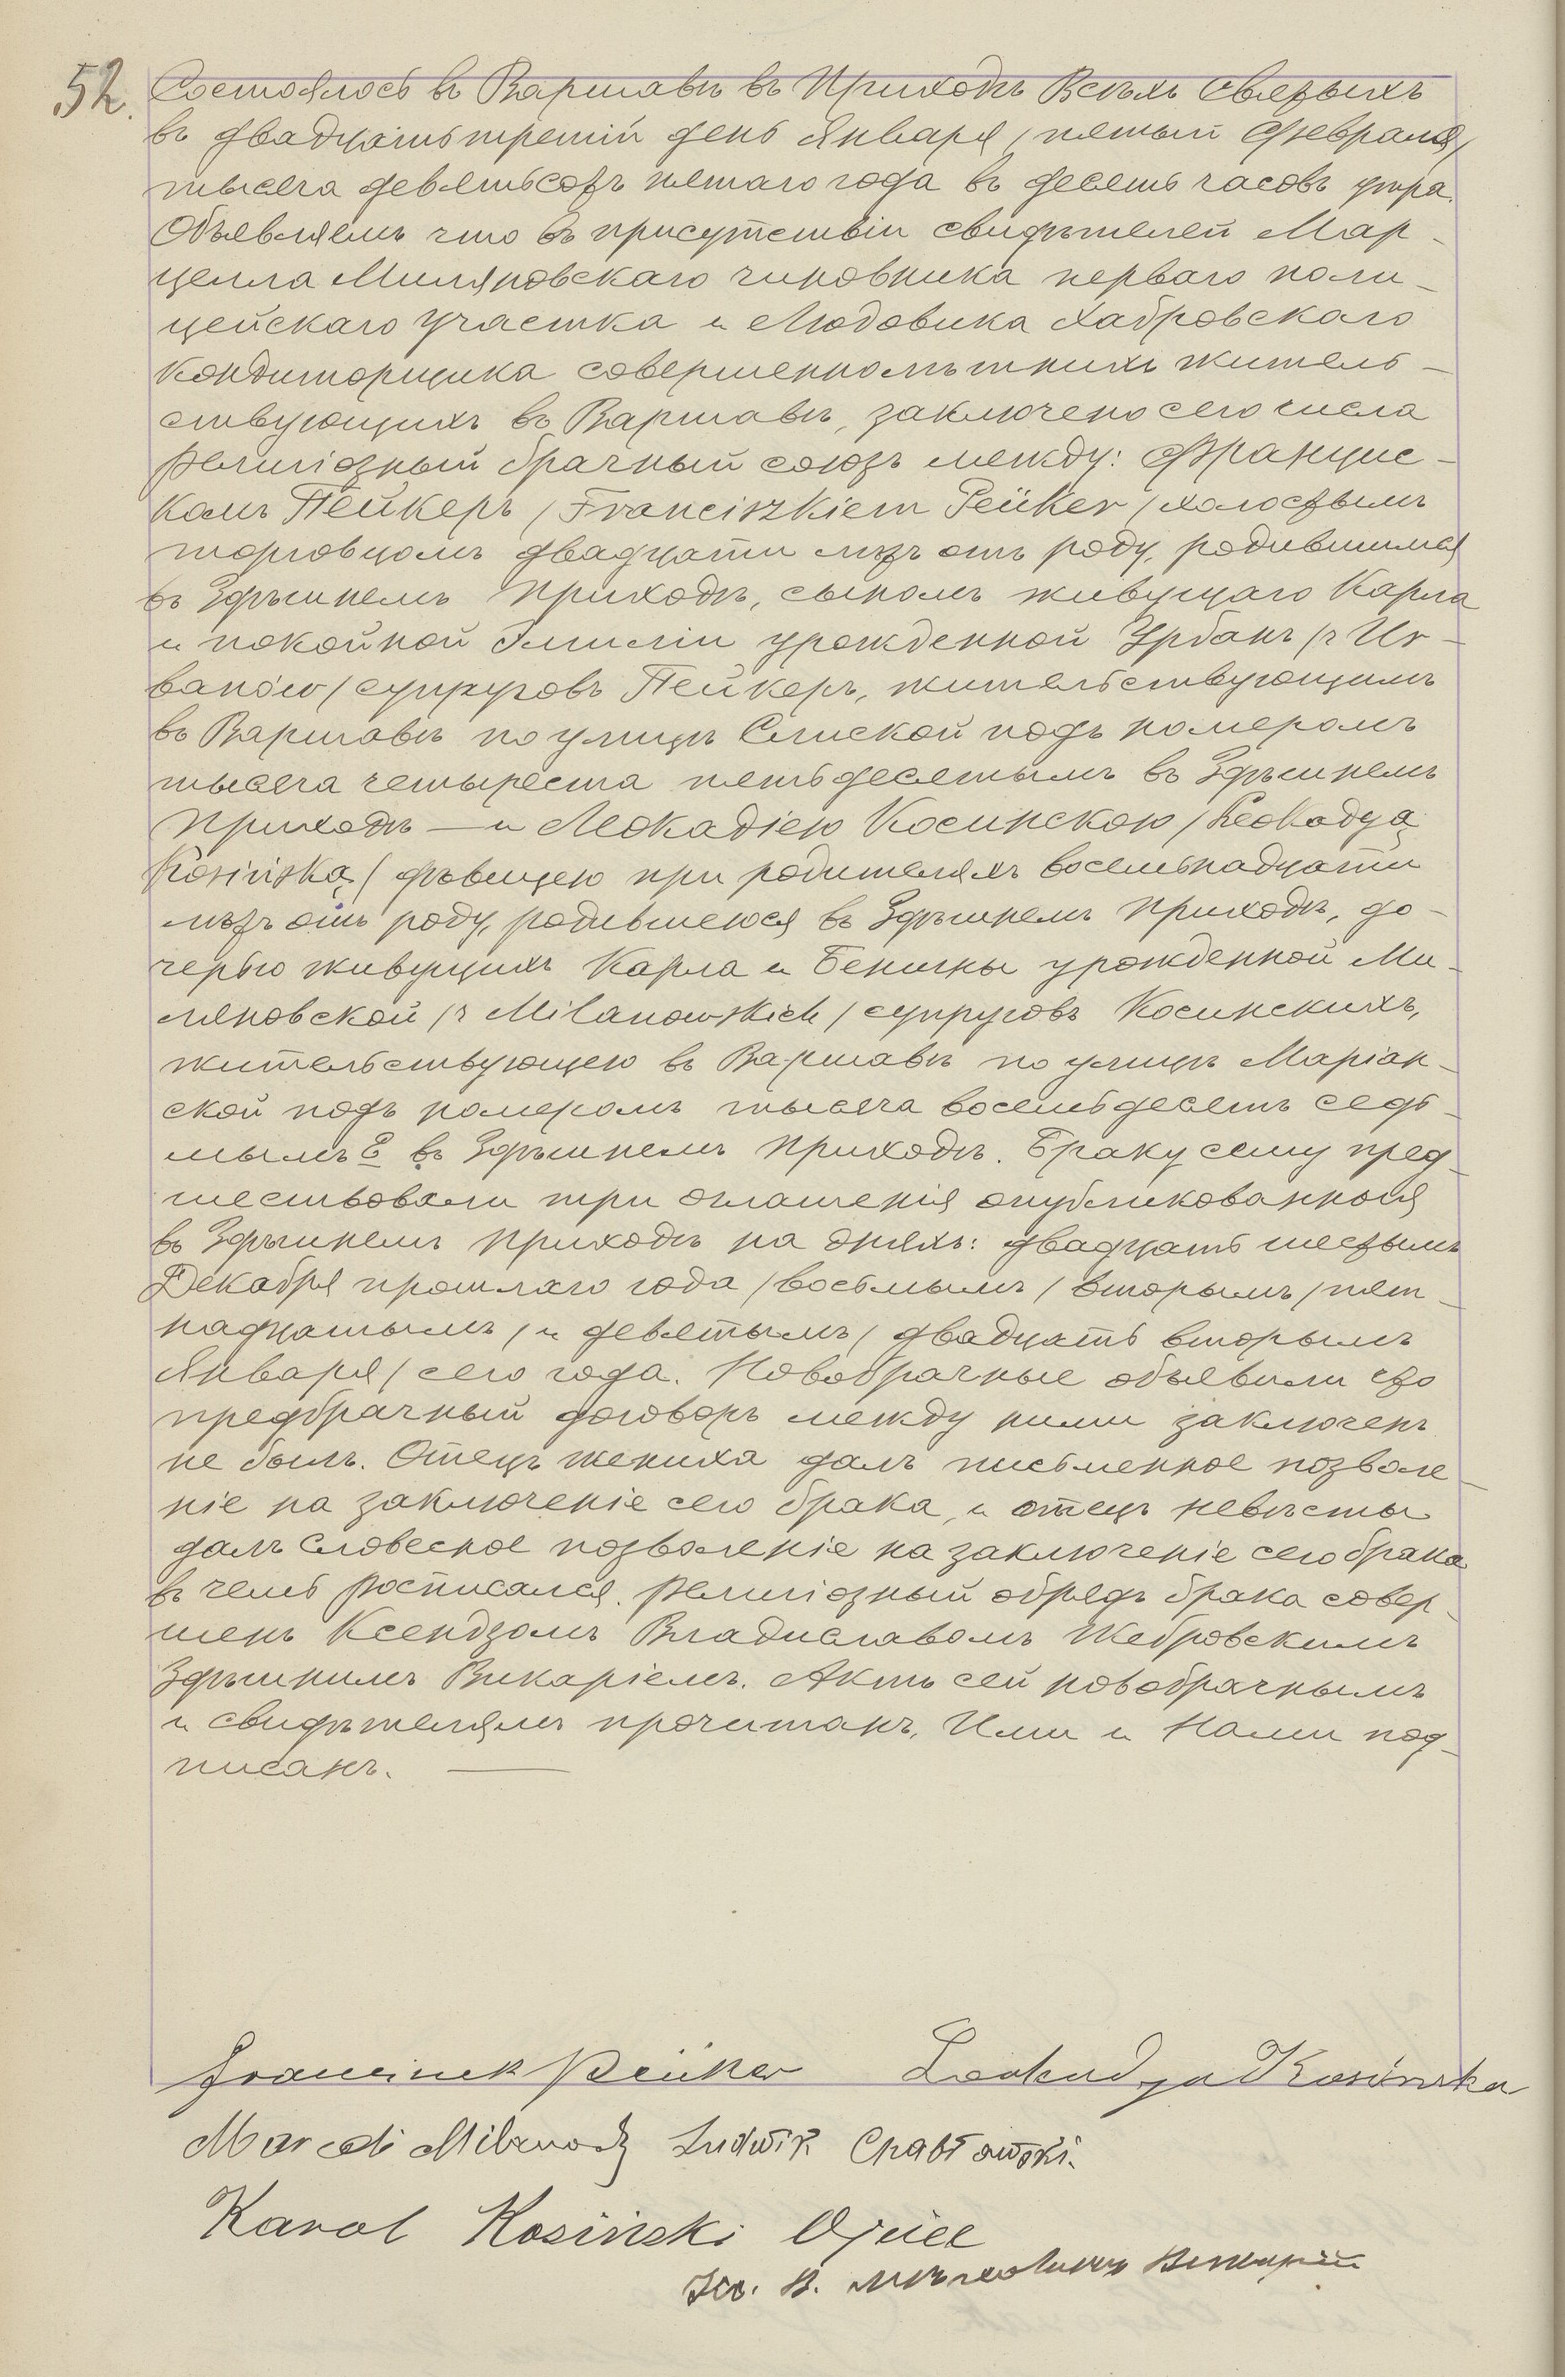 52.
Состоялось въ Варшавѣ въ Приходѣ Всѣхъ Святыхъ
въ двадцать третій день Января /пятый Февраля/
тысяча девятьсотъ пятаго года въ десять часовъ утра.
Объявляемъ что въ присутствіи свидѣтелей Мар-
целла Миляновскаго чиновника перваго поли-
цейскаго участка и Людовика Хабровскаго
кондиторщика совершеннолѣтнихъ житель-
ствующихъ въ Варшавѣ, заключено сего числа
религіозный брачный союзъ между: Францис-
комъ Пейкеръ /Franciszkiem Peüker/ холостымъ
торговцомъ двадцати лѣтъ отъ роду, родившимся
въ Здѣшнемъ Приходѣ, сыномъ живущаго Карла
и покойной Эмиліи урожденной Урбанъ /z Ur-
banów/ супруговъ Пейкеръ, жительствующимъ
въ Варшавѣ по улицѣ Слиской подъ номеромъ
тысяча четыреста пятьдесятымъ въ Здѣшнемъ
Приходѣ — и Леокадіею Косинскою /Leokadyą
Kosińską/ дѣвицею при родителяхъ восемьнадцати
лѣтъ отъ роду, родившеюся въ Здѣшнемъ Приходѣ, до-
черью живущихъ Карла и Бенигны урожденной Ми-
ляновской /z Milanowskich/ супруговъ Косинскихъ,
жительствующею въ Варшавѣ по улицѣ Маріан-
ской подъ номеромъ тысяча восемьдесятъ седь-
мымъ E въ Здѣшнемъ Приходѣ. Браку сему пред-
шествовали три оглашенія опубликованныя
въ Здѣшнемъ Приходѣ на дняхъ: двадцать шестымъ
Декабря прошлаго года /восьмымъ/ вторымъ /пят-
надцатымъ/ и девятымъ /двадцать вторымъ
Января/ сего года. Новобрачные объявили что
предбрачный договоръ между ними заключенъ
не былъ. Отецъ жениха далъ письменное позволе-
ніе на заключеніе сего брака, и отецъ невѣсты
далъ словесное позволеніе на заключеніе сего брака
въ чемъ росписался. Религіозный обрядъ брака совер-
шенъ Ксендзомъ Владиславомъ Жебровскимъ
Здѣшнимъ Викаріемъ. Актъ сей новобрачнымъ
и свидѣтелямъ прочитанъ, Ими и Нами под-
писанъ. —
Franciszek Peüker Leokadya Kosińska
Marceli Ludwik
Karol Kosiński Ojciec
Кс. В.